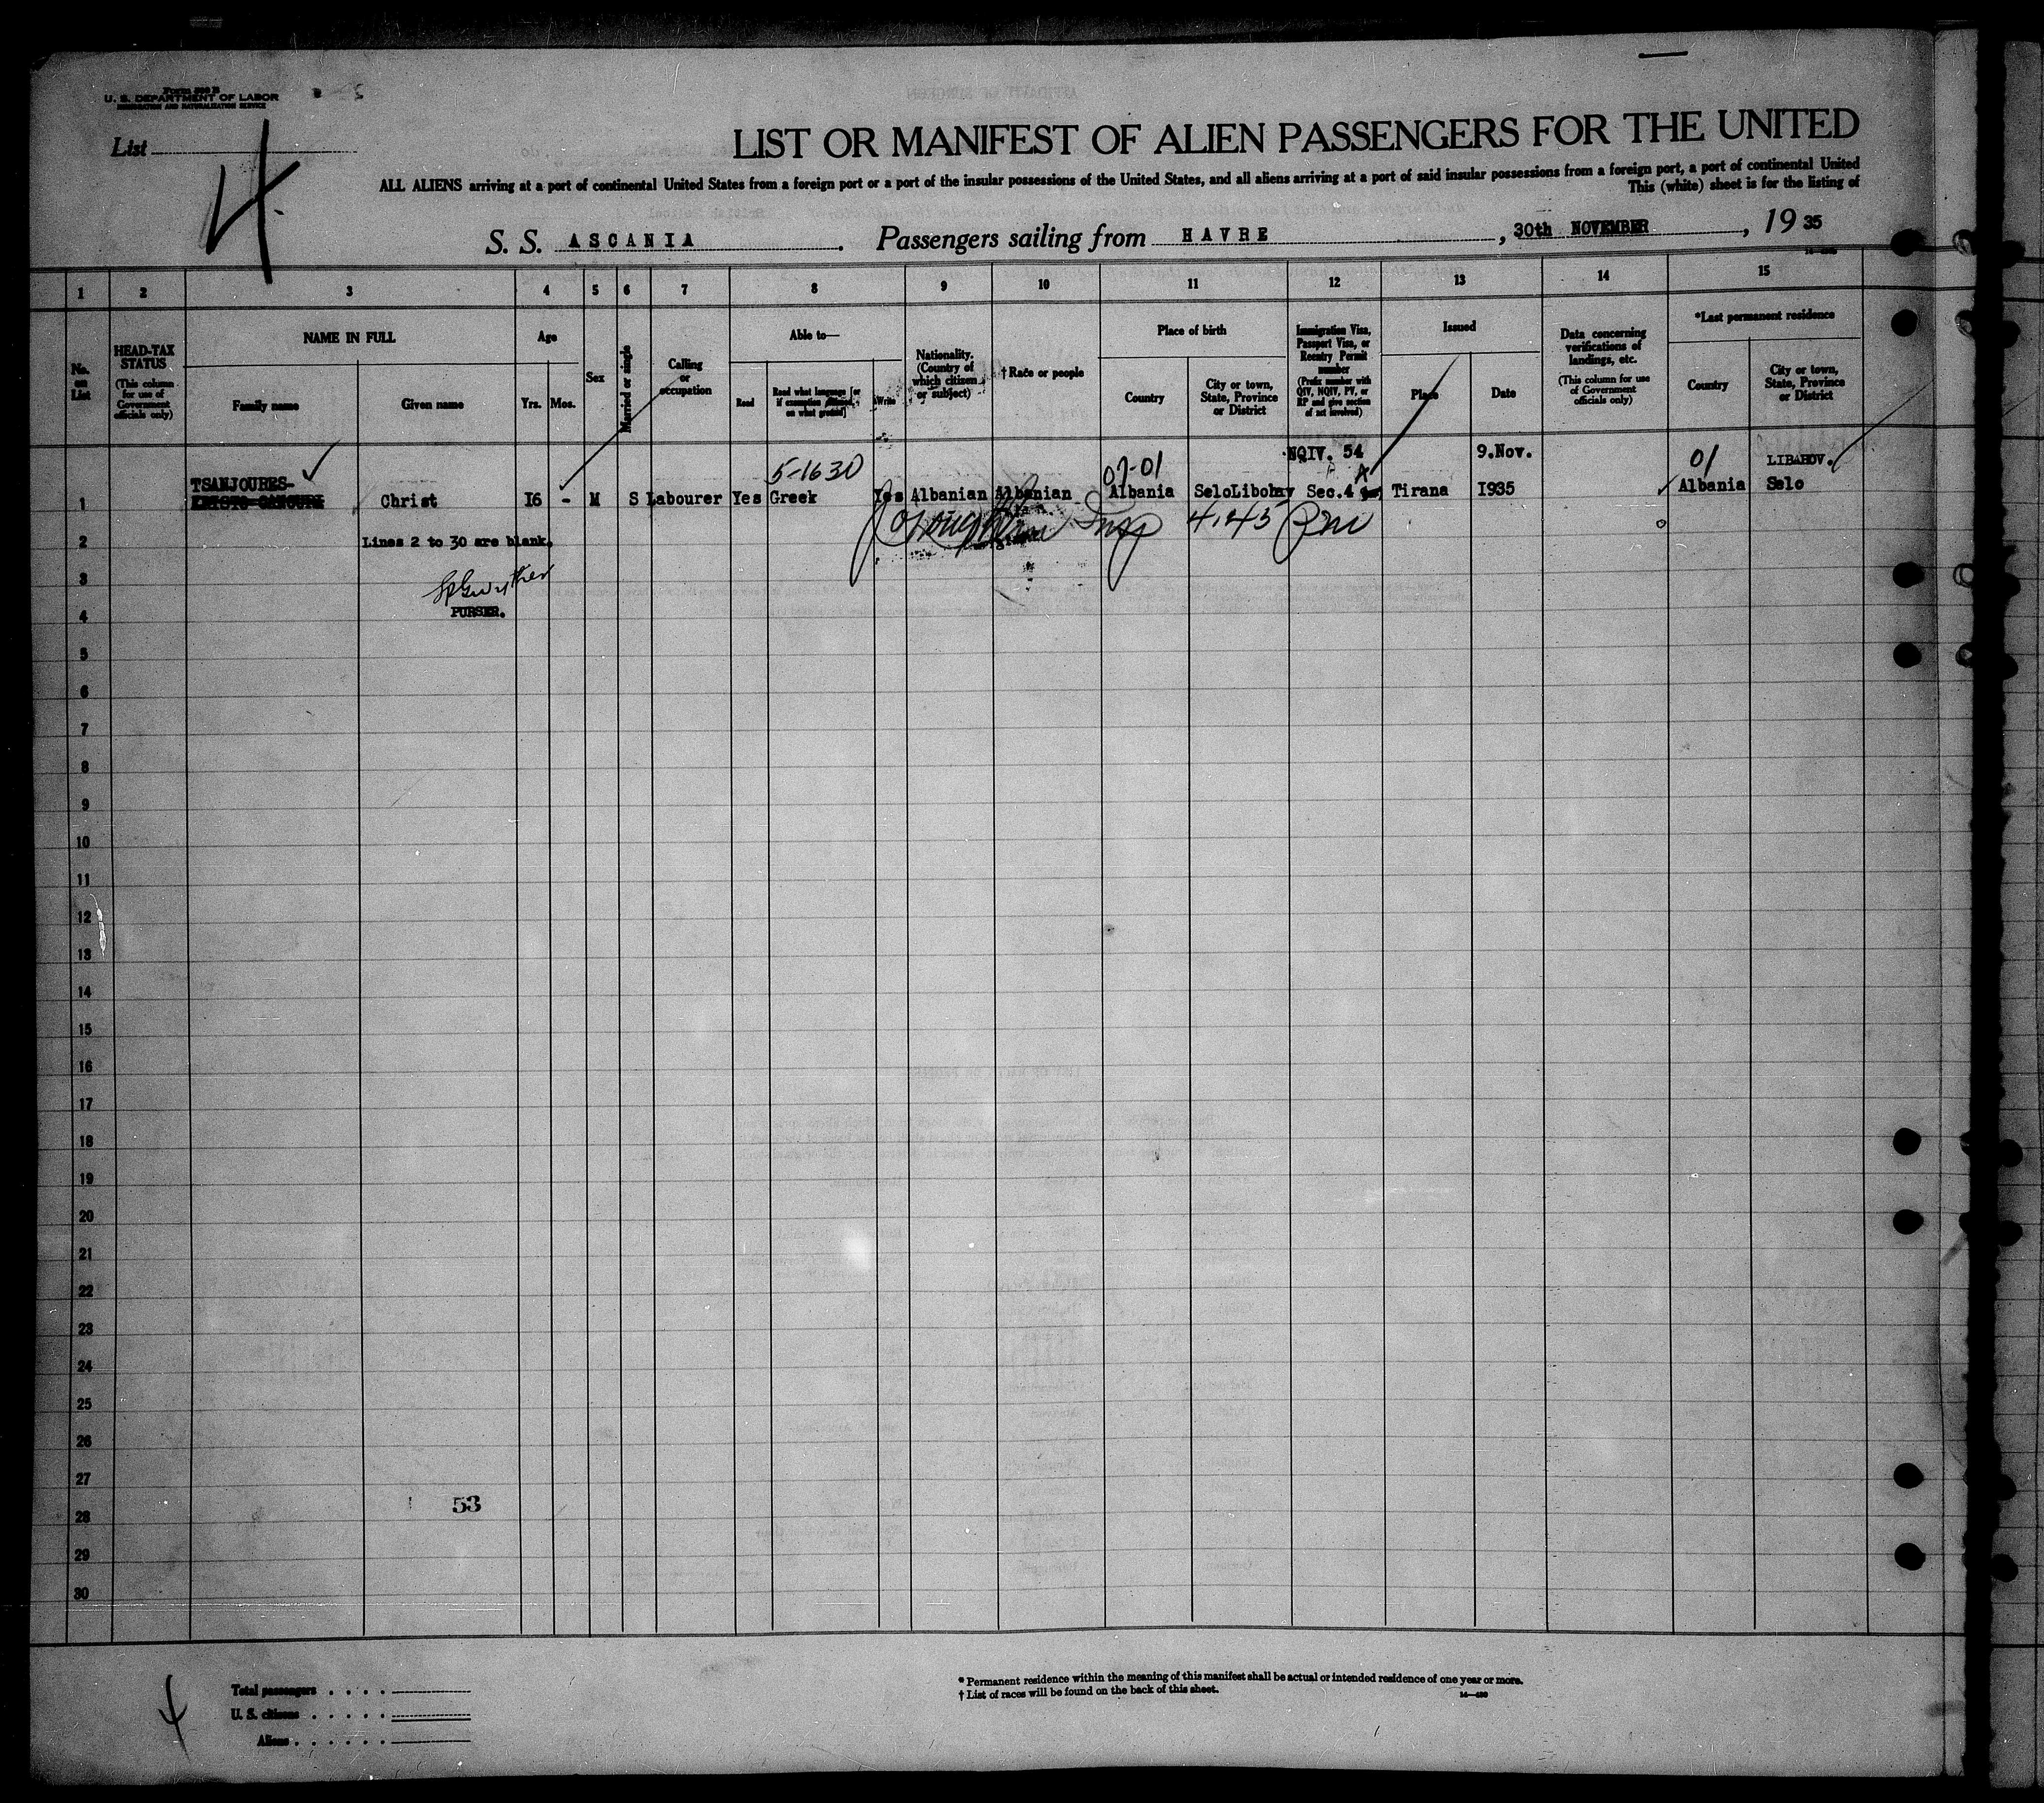 Form 500 B
U. S. DEPARTMENT OF LABOR
IMMIGRATION AND NATURALIZATION SERVICE
List
4
LIST OR MANIFEST OF ALIEN PASSENGERS FOR THE UNITED
ALL ALIENS arriving at a port of continental United States from a foreign port or a port of the insular possessions of the United States, and all aliens arriving at a port of said insular possessions from a foreign port, a port of continental United
This (white) sheet is for the listing of
S. S. ASCANIA. Passengers sailing from HAVRE, 30th NOVEMBER, 19 35
1 2 3 4 5 6 7 8 9 10 11 12 13 14 15
No. on List
HEAD-TAX STATUS
(This column for use of Government officials only)
NAME IN FULL
Family name
Given name
Age
Yrs. Mos.
Sex
Married or single
Calling or occupation
Able to—
Read
Read what language [or if exemption claimed, on what ground]
Write
Nationality. (Country of which citizen or subject)
†Race or people
Place of birth
Country
City or town, State, Province or District
Immigration Visa, Passport Visa, or Reentry Permit number
(Prefix number with QIV, NQIV, PV, or RP and give section of act involved)
Issued
Place
Date
Data concerning verifications of landings, etc.
(This column for use of Government officials only)
*Last permanent residence
Country
City or town, State, Province or District
5-1630
01
NQIV. 54
9.Nov.
01
LIBAHOV.
TSANJOURES-
1 Christ 16 - M S Labourer Yes Greek Yes Albanian Albanian Albania SeloLibohav Sec.4 Tirana 1935 Albania Selo
Insp 4.45 Pm
2 Lines 2 to 30 are blank.
3
PURSER.
4
5
6
7
8
9
10
11
12
13
14
15
16
17
18
19
20
21
22
23
24
25
26
27
53
28
29
30
4
Total passengers
U. S. citizens
Aliens
* Permanent residence within the meaning of this manifest shall be actual or intended residence of one year or more.
† List of races will be found on the back of this sheet.
14—430